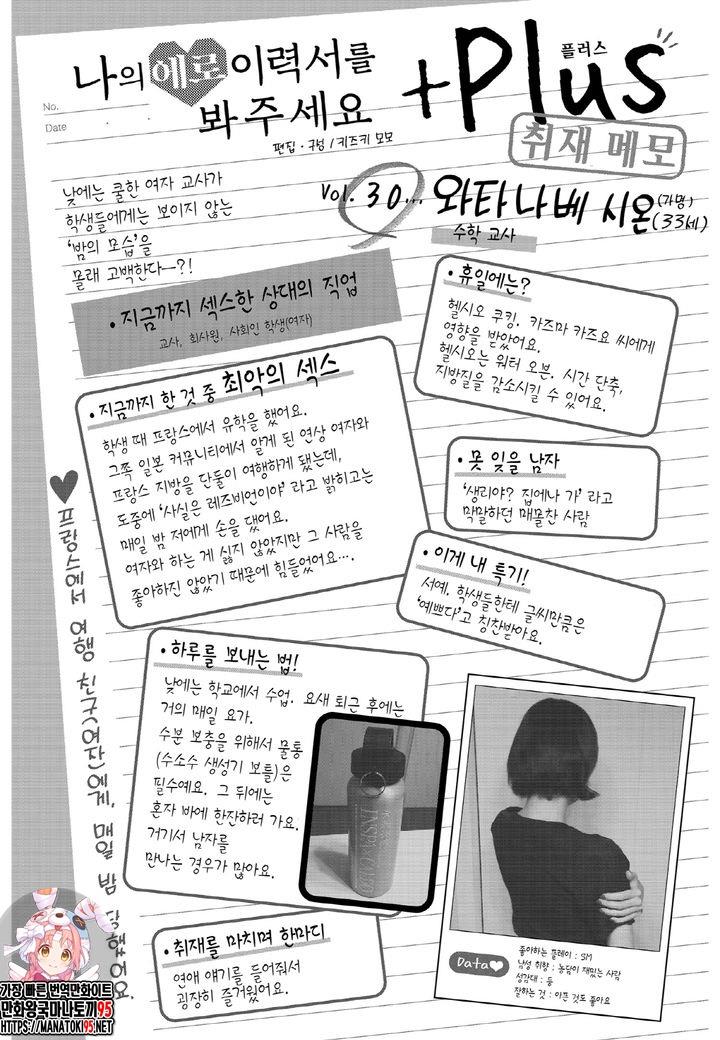 No.
Date
나의 에로 이력서를
봐 주세요
+Plus
플러스
취재 메모
편집 · 구성 / 키즈키 모모
낮에는 쿨한 여자 교사가
학생들에게는 보이지 않는
'밤의 모습'을
몰래 고백한다—?!
Vol. 30... 와타나베 시온 (가명) (33세)
수학 교사
• 지금까지 섹스한 상대의 직업
교사, 회사원, 사회인 학생(여자)
• 지금까지 한 것 중 최악의 섹스
학생 때 프랑스에서 유학을 했어요.
그쪽 일본 커뮤니티에서 알게 된 연상 여자와
프랑스 지방을 단둘이 여행하게 됐는데,
도중에 '사실은 레즈비언이야' 라고 밝히고는
매일 밤 저에게 손을 댔어요.
여자와 하는 게 싫지 않았지만 그 사람을
좋아하진 않았기 때문에 힘들었어요….
♥ 프랑스에서 여행 친구(여자)에게, 매일 밤 당했어요.
• 휴일에는?
헬시오 쿠킹. 카즈마 카즈요 씨에게
영향을 받았어요.
헬시오는 워터 오븐. 시간 단축,
지방질을 감소시킬 수 있어요.
• 못 잊을 남자
'생리야? 집에나 가' 라고
막말하던 매몰찬 사람
• 이게 내 특기!
서예. 학생들한테 글씨만큼은
'예쁘다'고 칭찬받아요.
• 하루를 보내는 법!
낮에는 학교에서 수업. 요새 퇴근 후에는
거의 매일 요가.
수분 보충을 위해서 물통
(수소수 생성기 보틀)은
필수예요. 그 뒤에는
혼자 바에 한잔하러 가요.
거기서 남자를
만나는 경우가 많아요.
• 취재를 마치며 한마디
연애 얘기를 들어줘서
굉장히 즐거웠어요.
Data♥
좋아하는 플레이 : SM
남성 취향 : 농담이 재밌는 사람
성감대 : 등
잘하는 것 : 아픈 것도 좋아요
가장 빠른 번역만화이트
만화왕국마나토끼95
HTTPS://MANATOKI95.NET